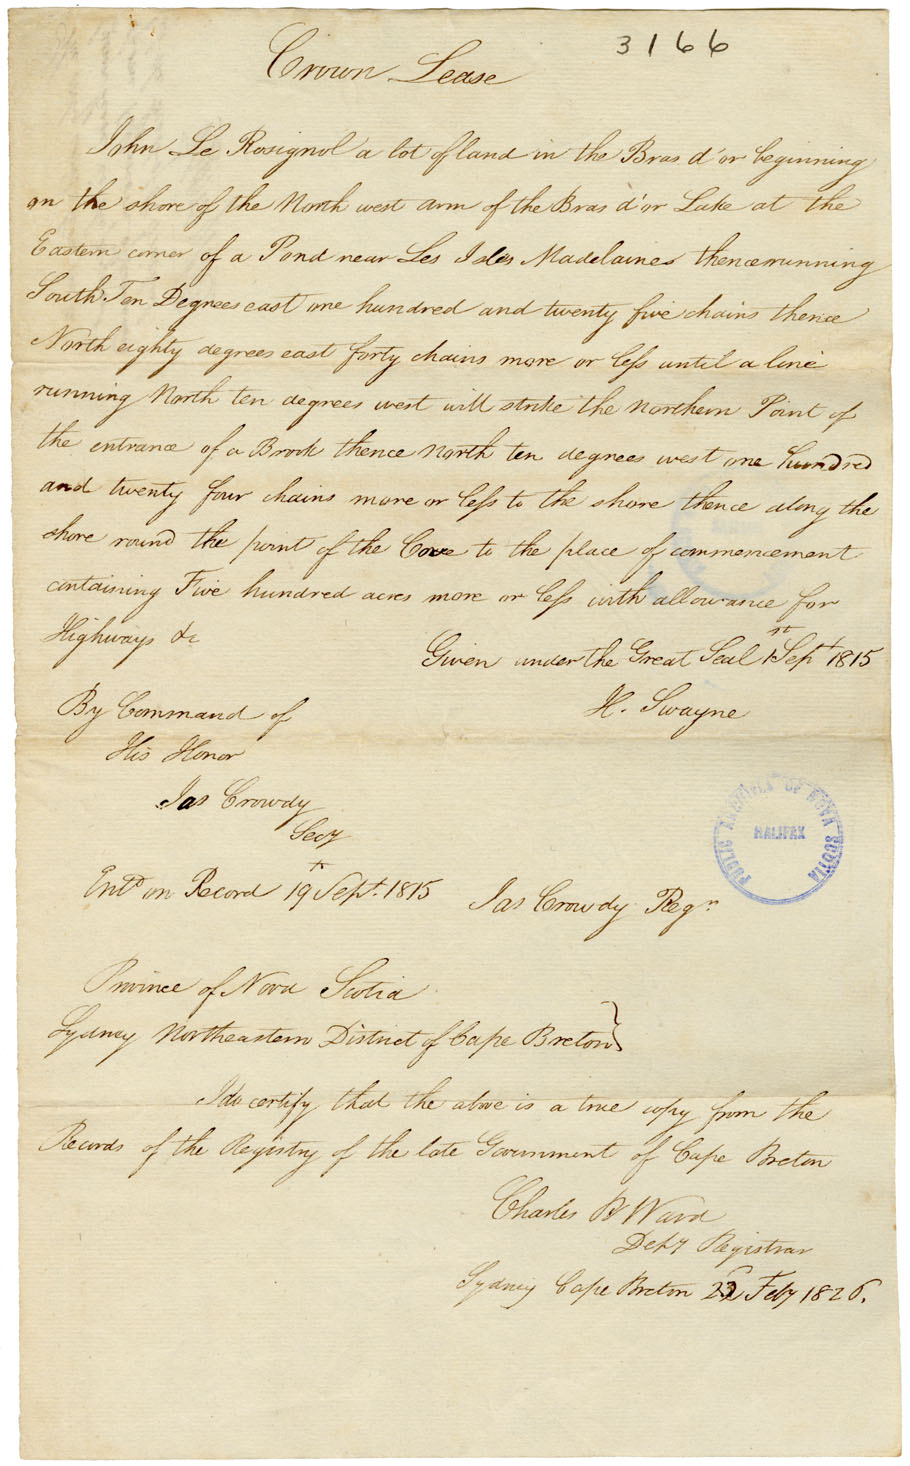 3166
Crown Lease
John Le Rosignol a lot of land in the Bras d'or beginning
on the shore of the North west arm of the Bras d'or Lake at the
Eastern corner of a Pond near Les Isles Madelaines thence running
South Ten Degrees east one hundred and twenty five chains thence
North eighty degrees east forty chains more or less until a line
running North ten degrees west will strike the Northern Point of
the entrance of a Brook thence North ten degrees west one hundred
and twenty four chains more or less to the shore thence along the
shore round the point of the Cove to the place of commencement
containing Five hundred acres more or less with allowance for
Highways &c
Given under the Great Seal 1st Sept 1815
H. Swayne
By Command of
His Honor
Jas Crowdy
Secy
Entd on Record 19th Sept. 1815
Jas Crowdy Regr
PUBLIC ARCHIVES OF NOVA SCOTIA
HALIFAX
Province of Nova Scotia
Sydney Northeastern District of Cape Breton}
I do certify that the above is a true copy from the
Records of the Registry of the late Government of Cape Breton
Charles B Ward
Depy Registrar
Sydney Cape Breton Feby 1826.